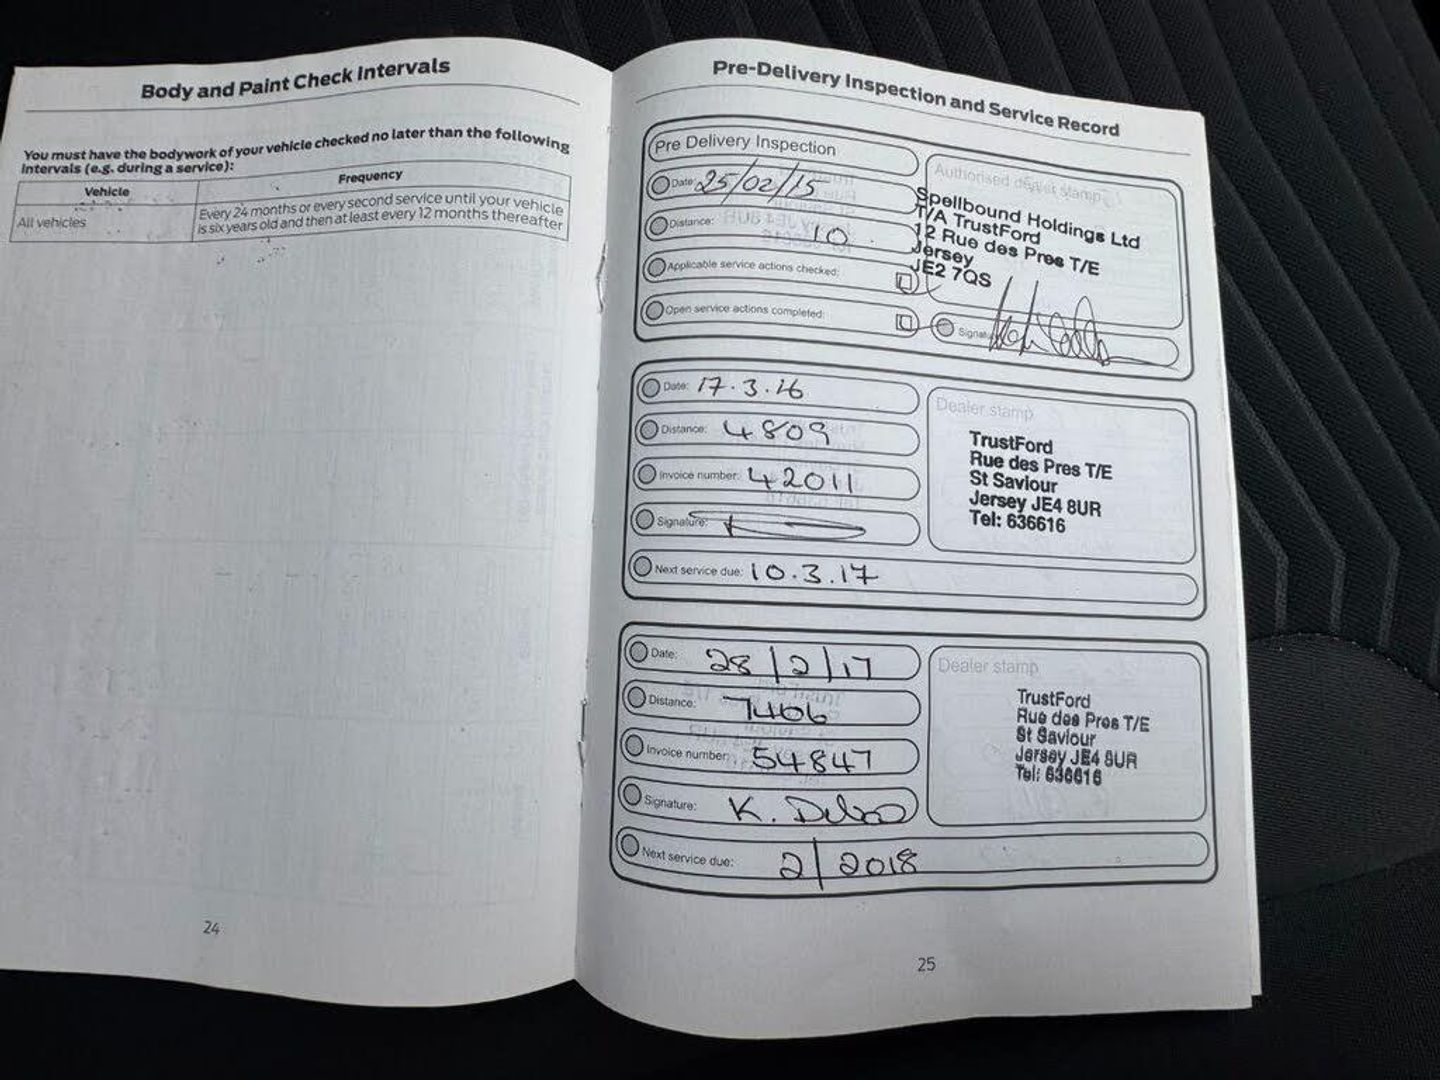 Body and Paint Check Intervals
You must have the bodywork of your vehicle checked no later than the following
intervals (e.g. during a service):
Vehicle
Frequency
All vehicles
Every 24 months or every second service until your vehicle
is six years old and then at least every 12 months thereafter
24
Pre-Delivery Inspection and Service Record
Pre Delivery Inspection
Date: 25/02/15
Distance: 10
Applicable service actions checked:
Open service actions completed:
Authorised dealer stamp
Spellbound Holdings Ltd
T/A TrustFord
12 Rue des Pres T/E
Jersey
JE2 7QS
Signature:
Date: 17.3.16
Distance: 4809
Invoice number: 42011
Signature:
Next service due: 10.3.17
Dealer stamp
TrustFord
Rue des Pres T/E
St Saviour
Jersey JE4 8UR
Tel: 636616
Date: 28/2/17
Distance: 7406
Invoice number: 54847
Signature: K.
Next service due: 2/2018
Dealer stamp
TrustFord
Rue des Pres T/E
St Saviour
Jersey JE4 8UR
Tel: 636616
25